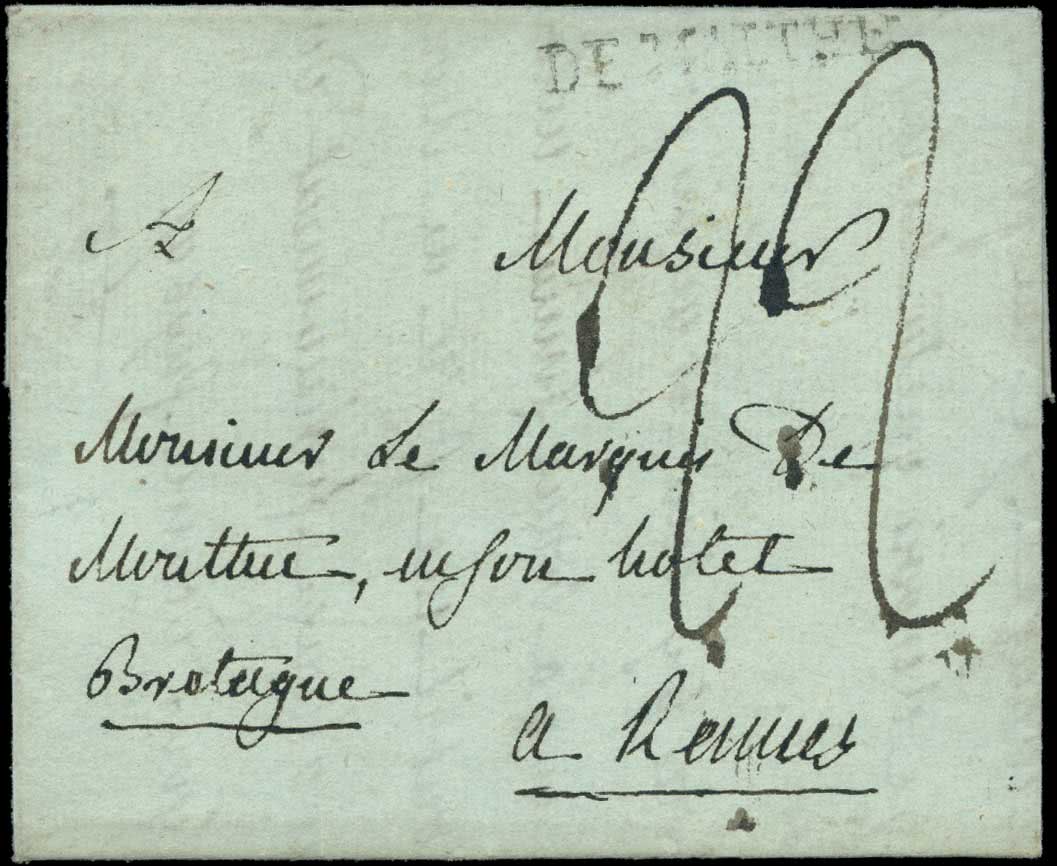 DE MALTHE
22
A Monsieur
Monsieur Le Marquis De
, en son hotel
Bretagne
a Rennes